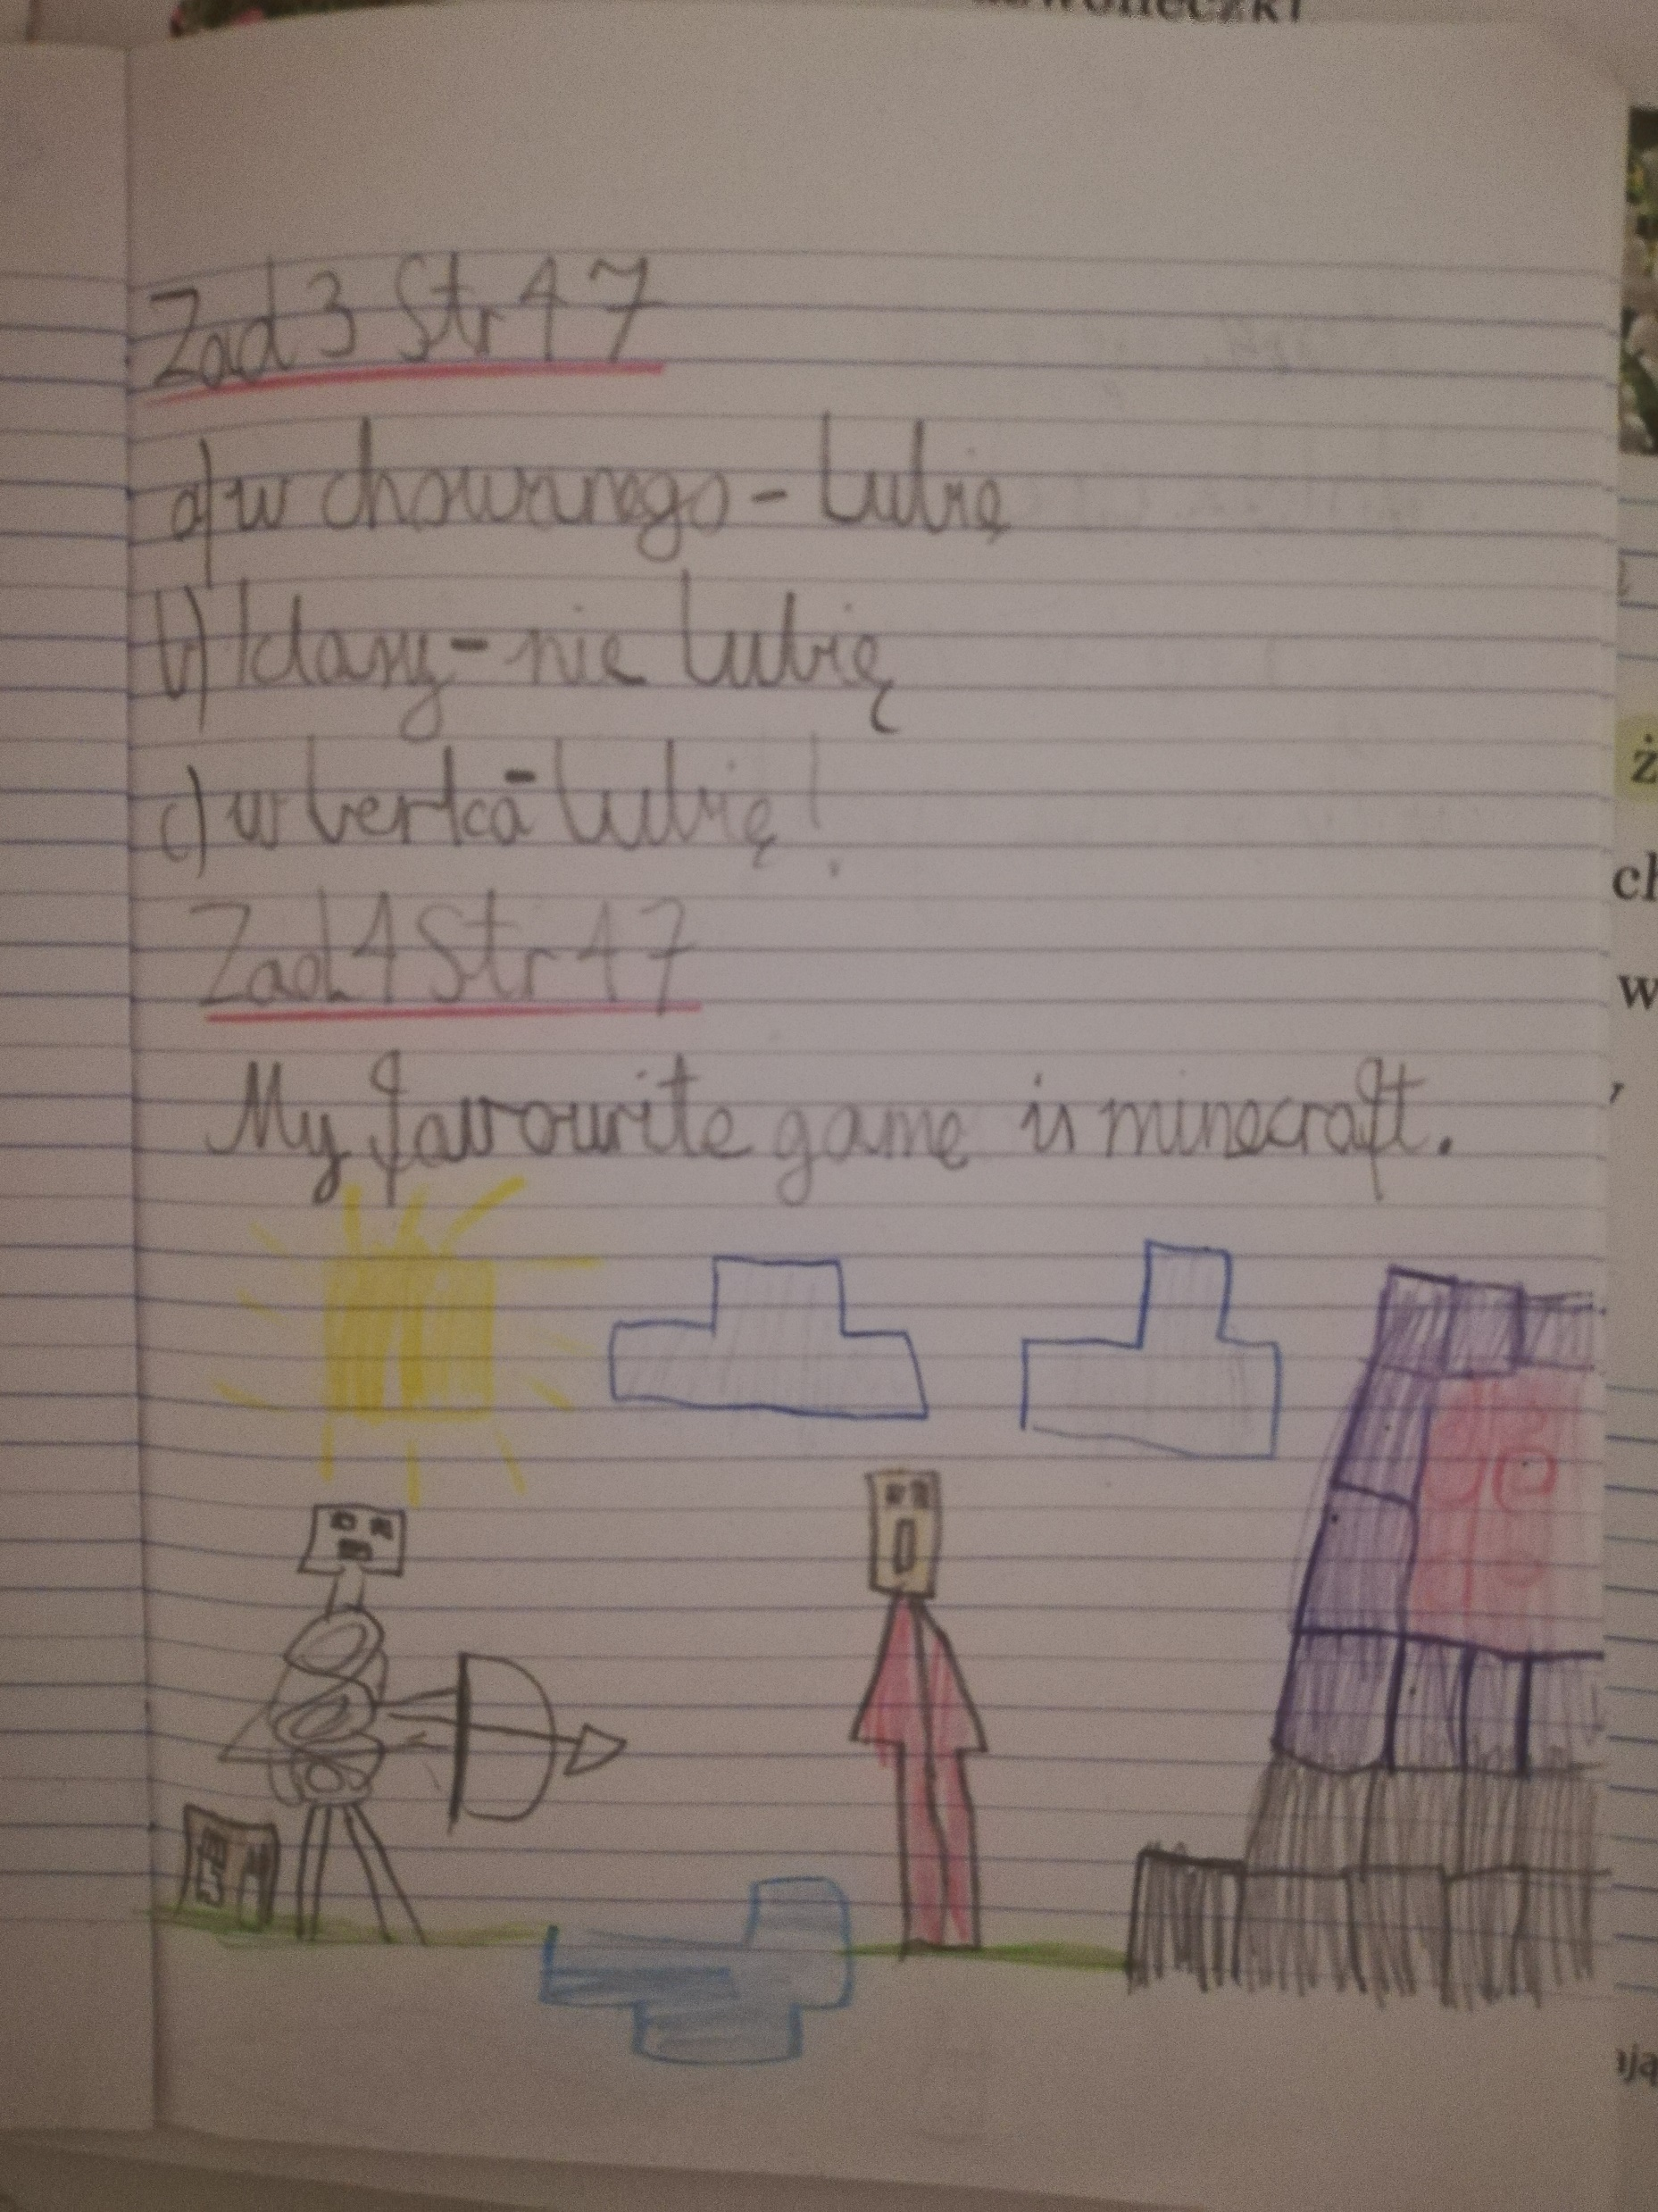 Zad 3 Str 47
a) w chowanego - lubię
b) klasy - nie lubię
c) w berka - lubię!
Zad 4 Str 47
My favourite game is minecraft.
ż
w